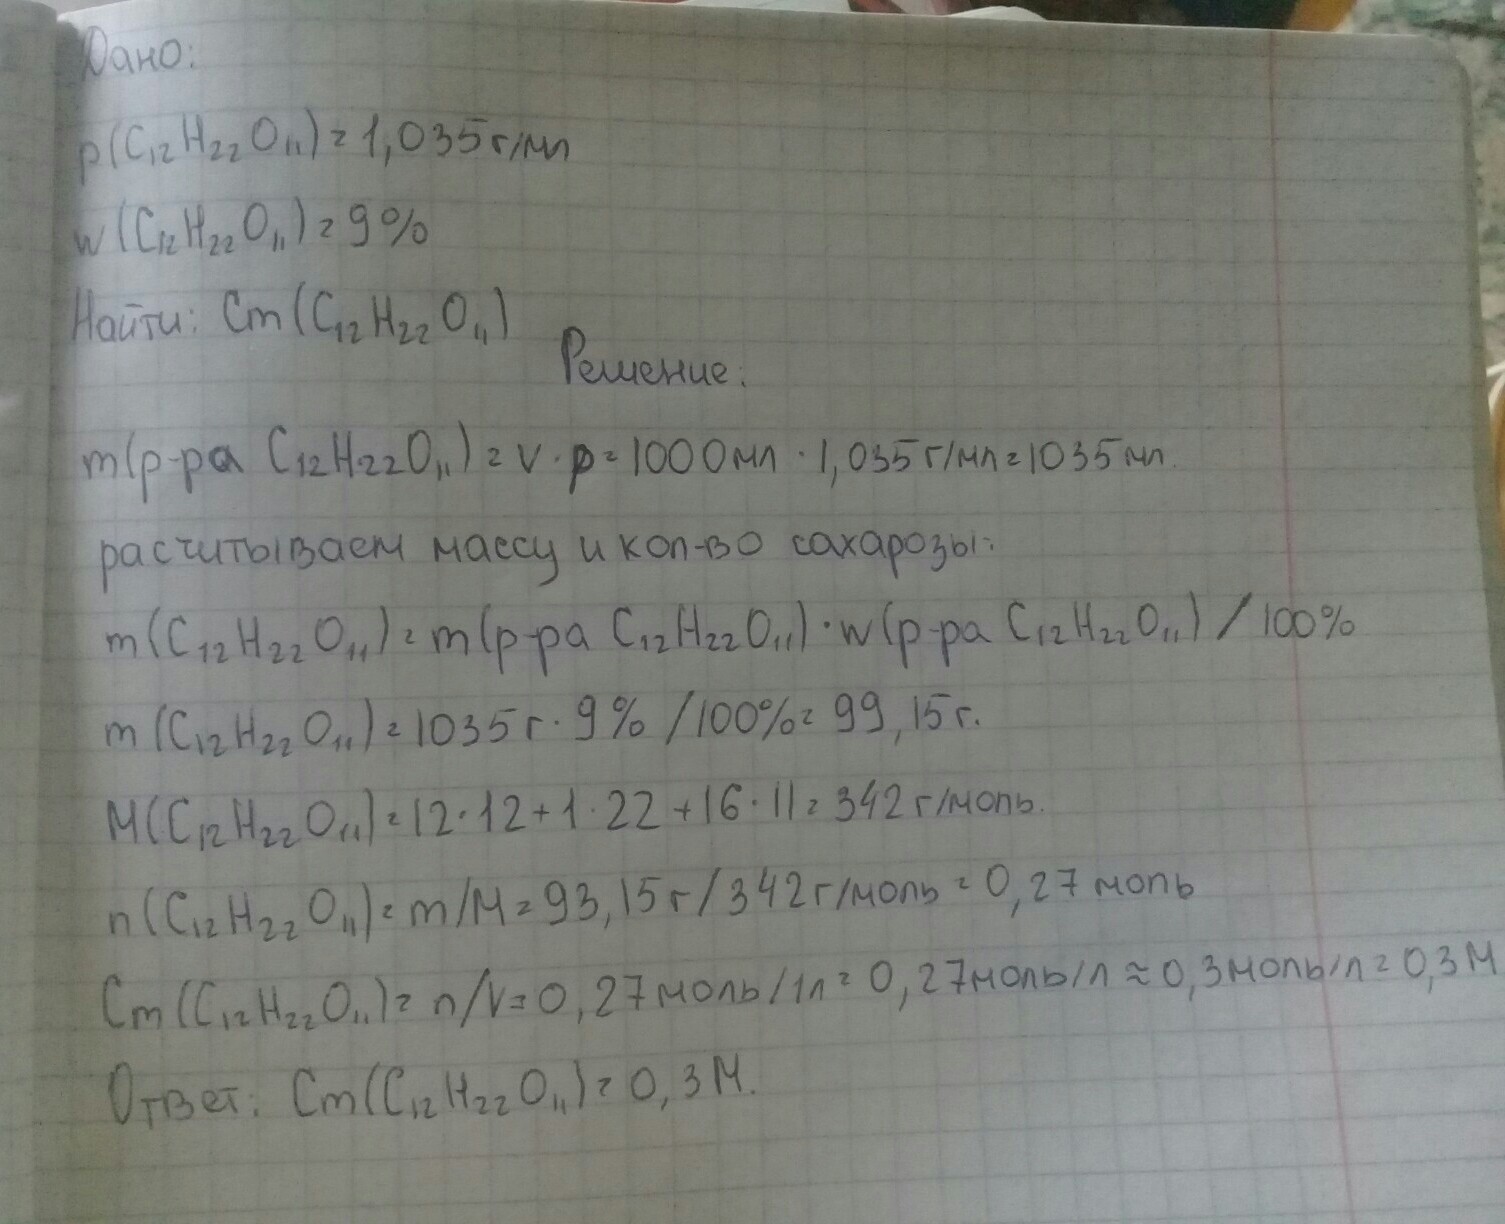 Дано:
p(C₁₂H₂₂O₁₁) = 1,035 г/мл
w(C₁₂H₂₂O₁₁) = 9%
Найти: Cm(C₁₂H₂₂O₁₁)
Решение:
m(р-ра C₁₂H₂₂O₁₁) = v · p = 1000 мл · 1,035 г/мл = 1035 мл.
расчитываем массу и кол-во сахарозы:
m(C₁₂H₂₂O₁₁) = m(р-ра C₁₂H₂₂O₁₁) · w(р-ра C₁₂H₂₂O₁₁) / 100%
m(C₁₂H₂₂O₁₁) = 1035 г · 9% / 100% = 99,15 г.
M(C₁₂H₂₂O₁₁) = 12 · 12 + 1 · 22 + 16 · 11 = 342 г/моль.
n(C₁₂H₂₂O₁₁) = m/M = 93,15 г / 342 г/моль = 0,27 моль
Cm(C₁₂H₂₂O₁₁) = n/V = 0,27 моль/1л = 0,27 моль/л ≈ 0,3 моль/л = 0,3 M
Ответ: Cm(C₁₂H₂₂O₁₁) = 0,3 M.